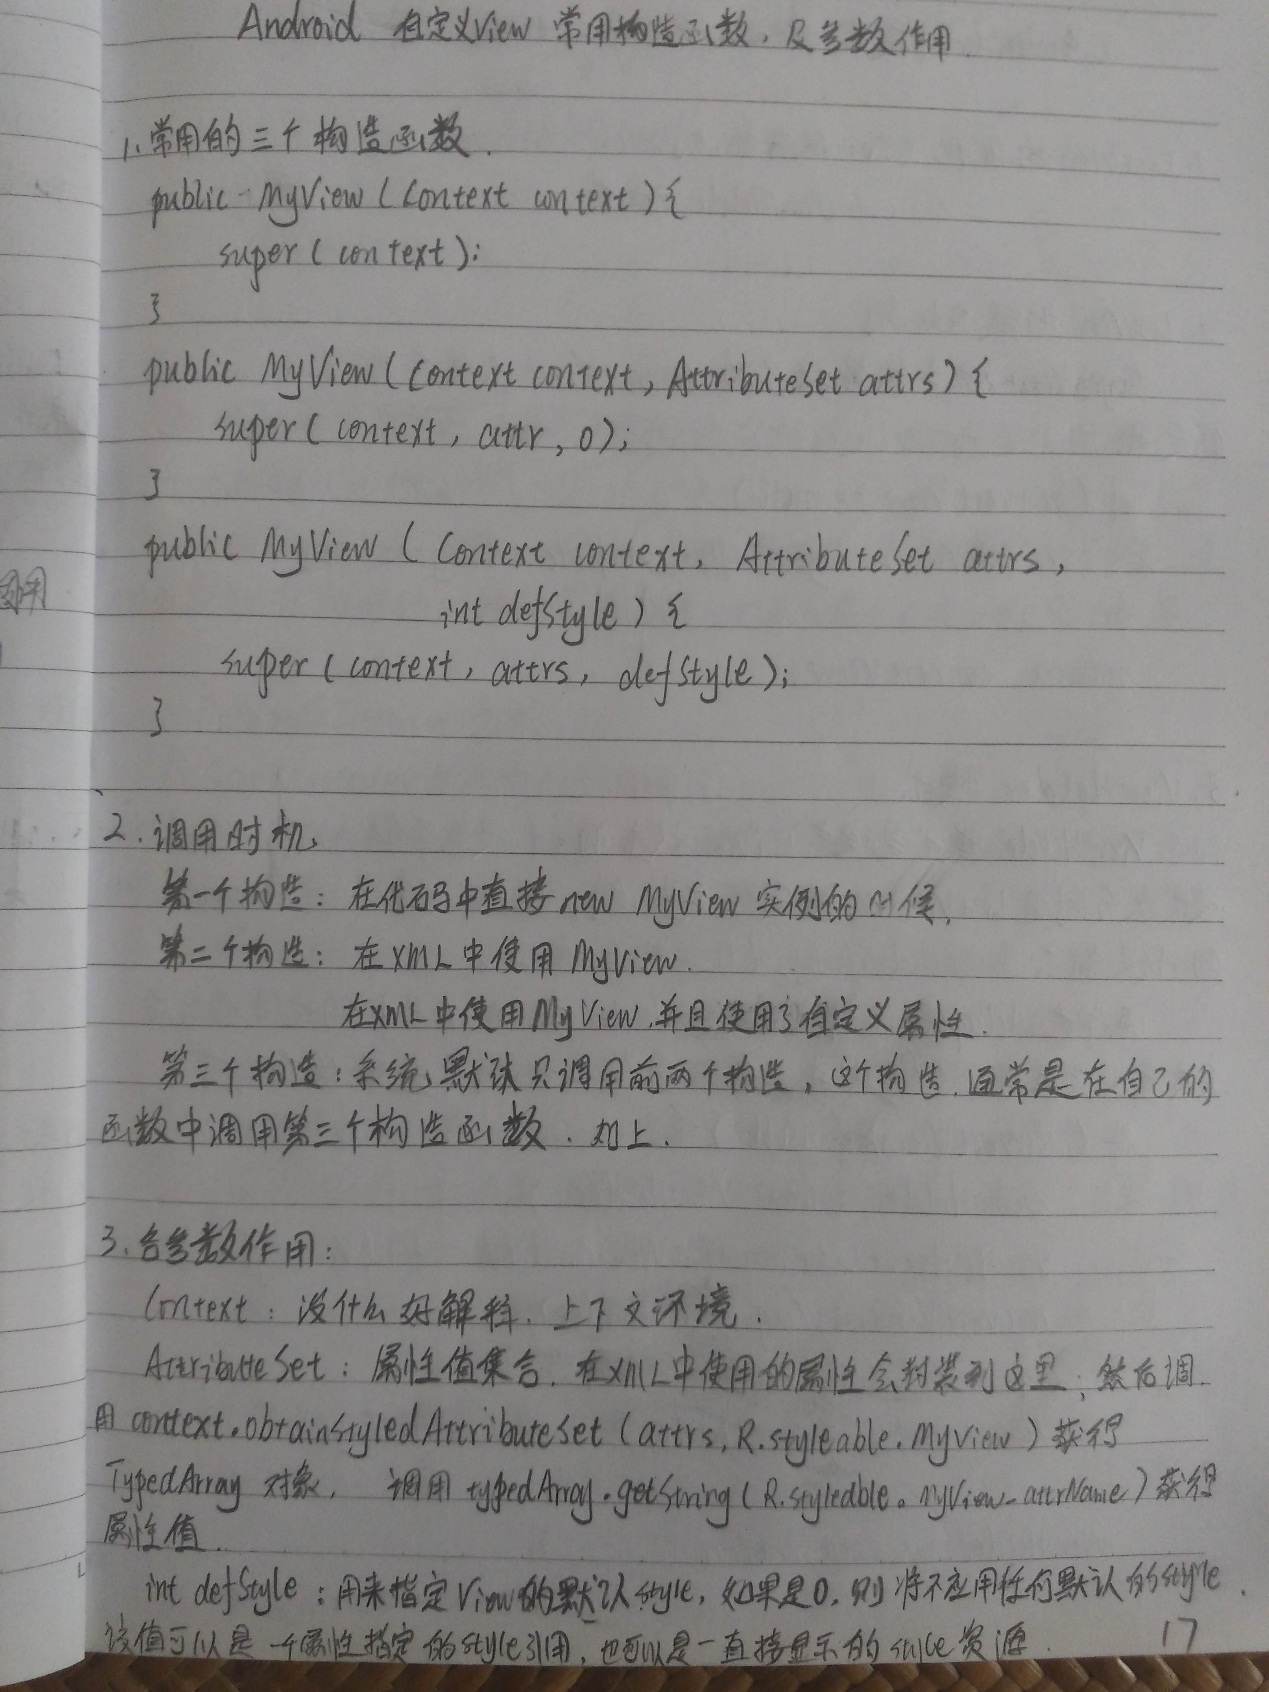 Android 自定义View 常用构造函数,及参数作用.
1.常用的三个构造函数.
public MyView (Context context){
super(context);
}
public MyView(Context context, AttributeSet attrs){
super(context, attr, 0);
}
public MyView (Context context, AttributeSet attrs,
int defStyle){
super(context, attrs, defStyle);
}
2.调用时机
第一个构造: 在代码中直接new MyView 实例的时候.
第二个构造: 在XML中使用MyView.
在XML中使用MyView.并且使用了自定义属性.
第三个构造:系统默认只调用前两个构造,这个构造.通常是在自己的
函数中调用第三个构造函数.如上.
3.各参数作用:
Context: 没什么好解释.上下文环境.
AttributeSet: 属性值集合.在XML中使用的属性会封装到这里;然后调
用context.obtainStyledAttributeSet(attrs, R.styleable.MyView)获得
TypedArray 对象, 调用 typedArray.getString(R.styledble.MyView_attrName)获得
属性值.
int defStyle:用来指定View的默认style,如果是0,则将不应用任何默认的style.
该值可以是一个属性指定的style引用,也可以是一直接显示的style资源.
17